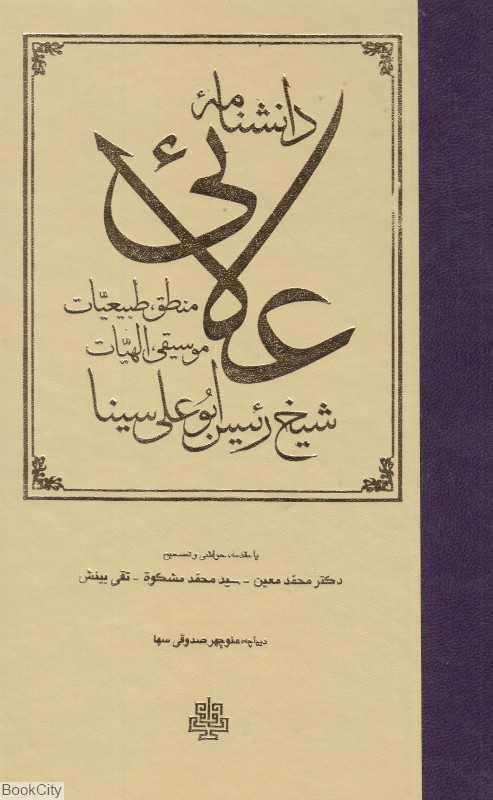 دانشنامهٔ
علائی
منطق، طبیعیّات
موسیقی، الهیّات
شیخ رئیس ابوعلی سینا
با مقدمه، حواشی و تصحیح
دکتر محمّد معین - سیّد محمّد مشکوة - تقی بینش
دیباچه، منوچهر صدوقی سها
مولی
BookCity